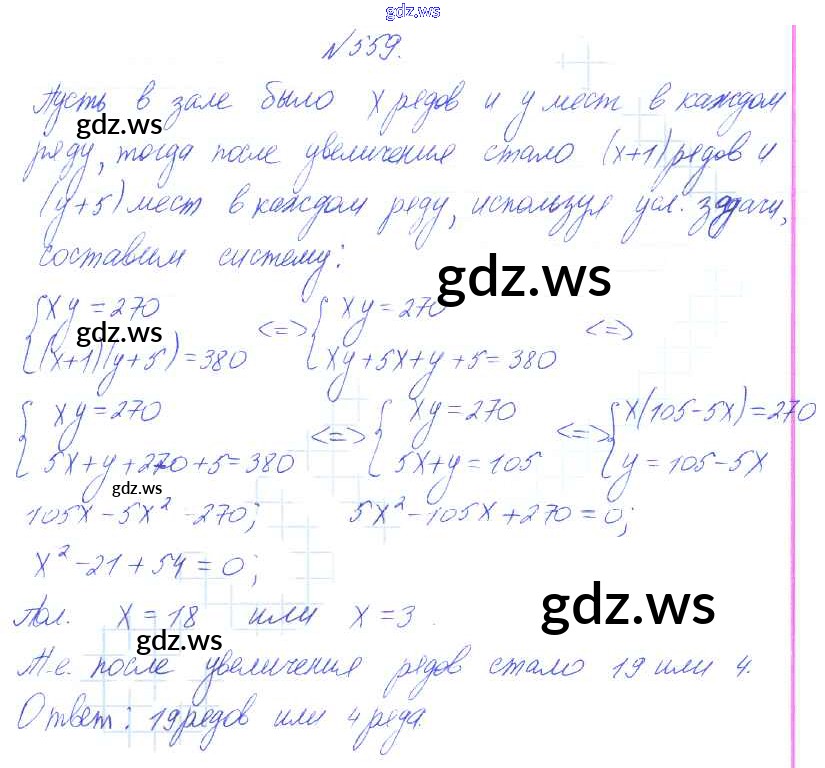 gdz.ws
№559.
Пусть в зале было x рядов и y мест в каждом
gdz.ws
ряду, тогда после увеличения стало (x+1) рядов и
(y+5) мест в каждом ряду, используя усл. задачи,
составим систему:
gdz.ws
{ xy = 270 <=> { xy = 270 <=>
gdz.ws
(x+1)(y+5) = 380 xy+5x+y+5 = 380
{ xy = 270 <=> { xy = 270 <=> { x(105-5x) = 270
5x+y+270+5 = 380 5x+y = 105 y = 105-5x
gdz.ws
105x - 5x² - 270; 5x² - 105x + 270 = 0;
x² - 21 + 54 = 0;
gdz.ws
Пол. x = 18 или x = 3.
gdz.ws
Т.е. после увеличения рядов стало 19 или 4.
Ответ: 19 рядов или 4 ряда.